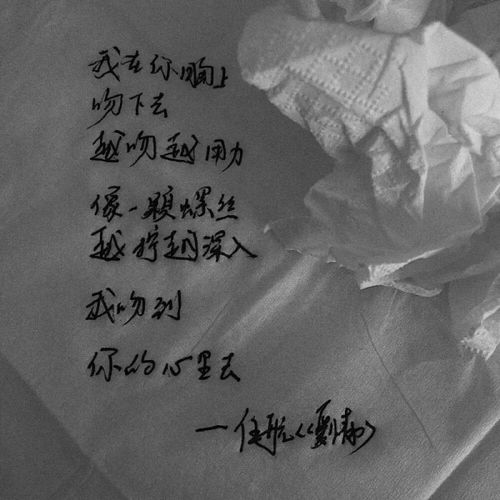 我在你胸上
吻下去
越吻越用力
像一颗螺丝
越拧越深入
我吻到
你的心里去
—任航《爱情》